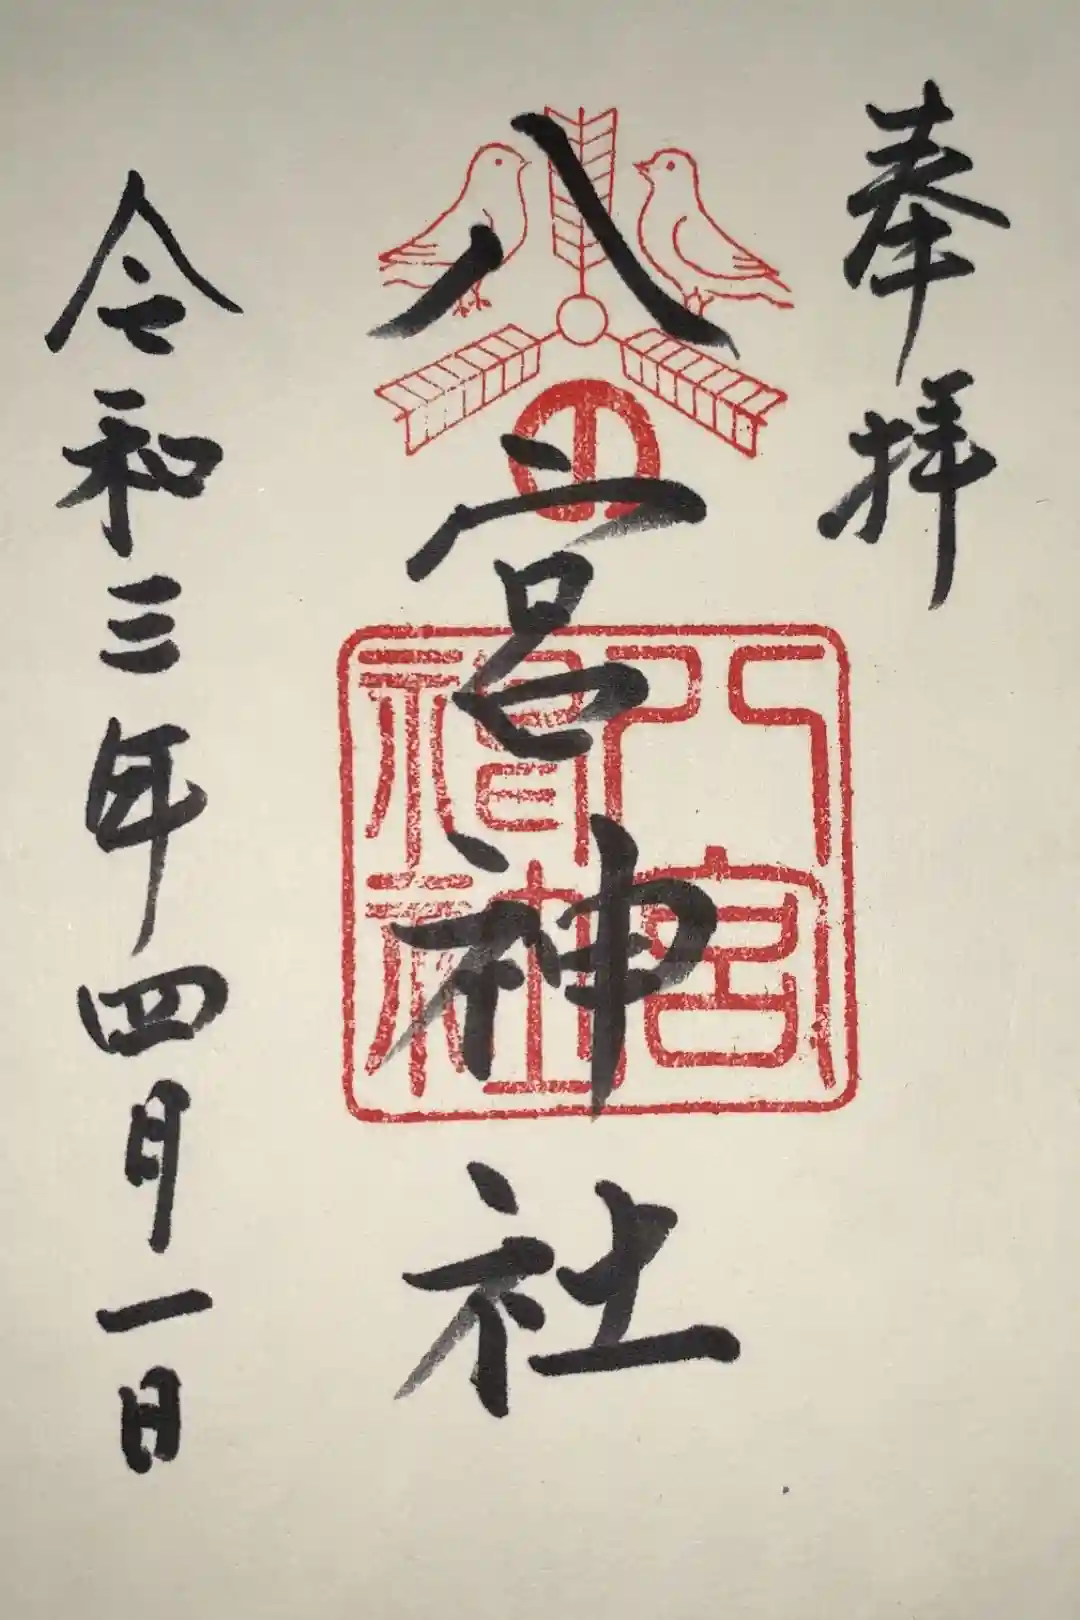 奉拝
八宮神社
八宮神社
令和三年四月一日